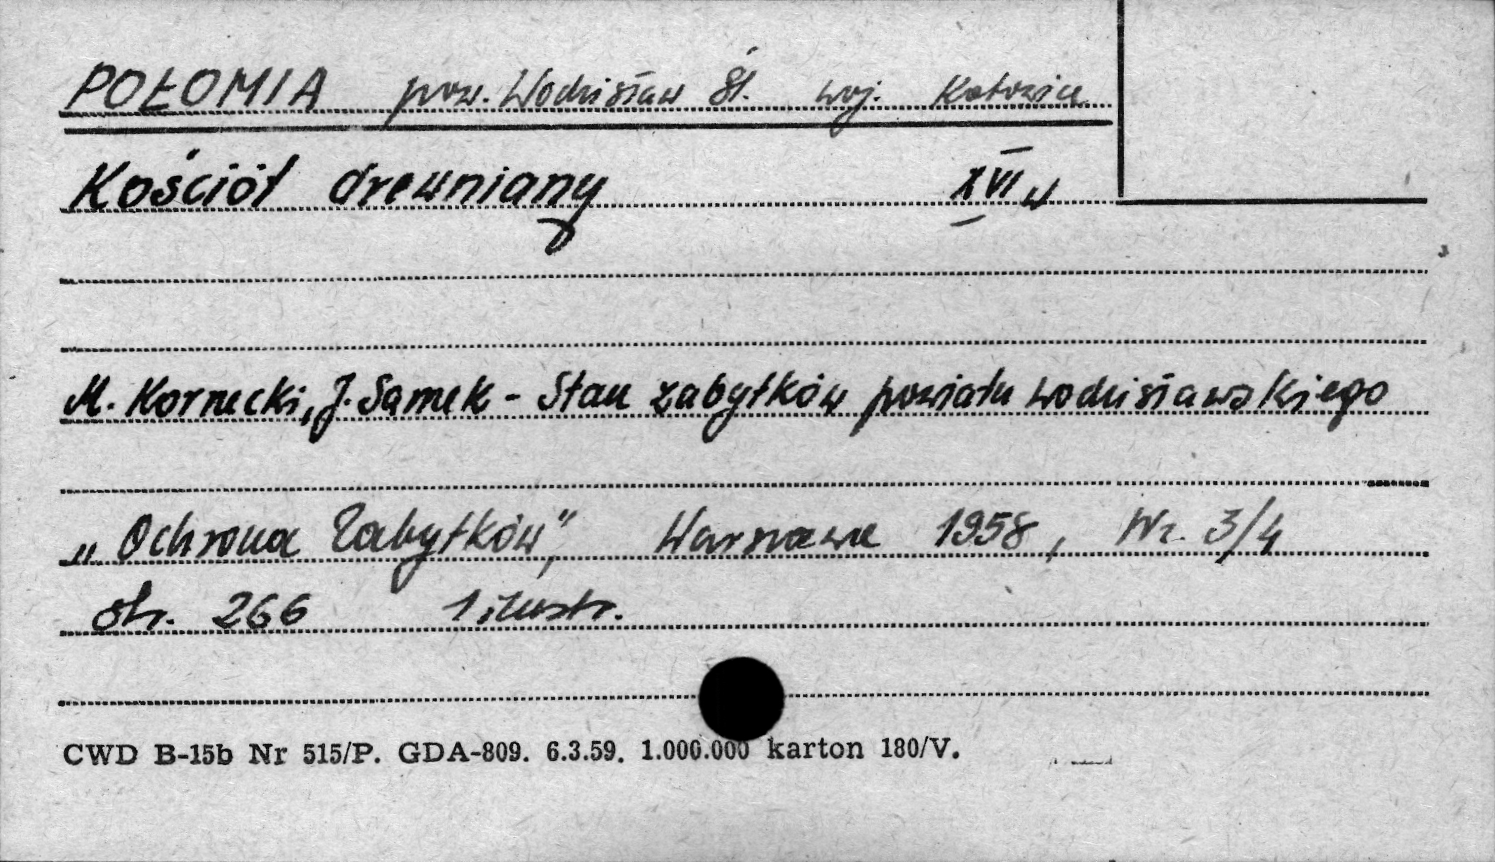 POŁOMIA pow. Wodzisław Śl. woj. Katowice
Kościół drewniany XVI w
M. Kornecki, J. Samek - Stan zabytków powiatu wodzisławskiego
„Ochrona Zabytków", Warszawa 1958, Nr. 3/4
str. 266 1 ilustr.
CWD B-15b Nr 515/P. GDA-809. 6.3.59. 1.000.000 karton 180/V.